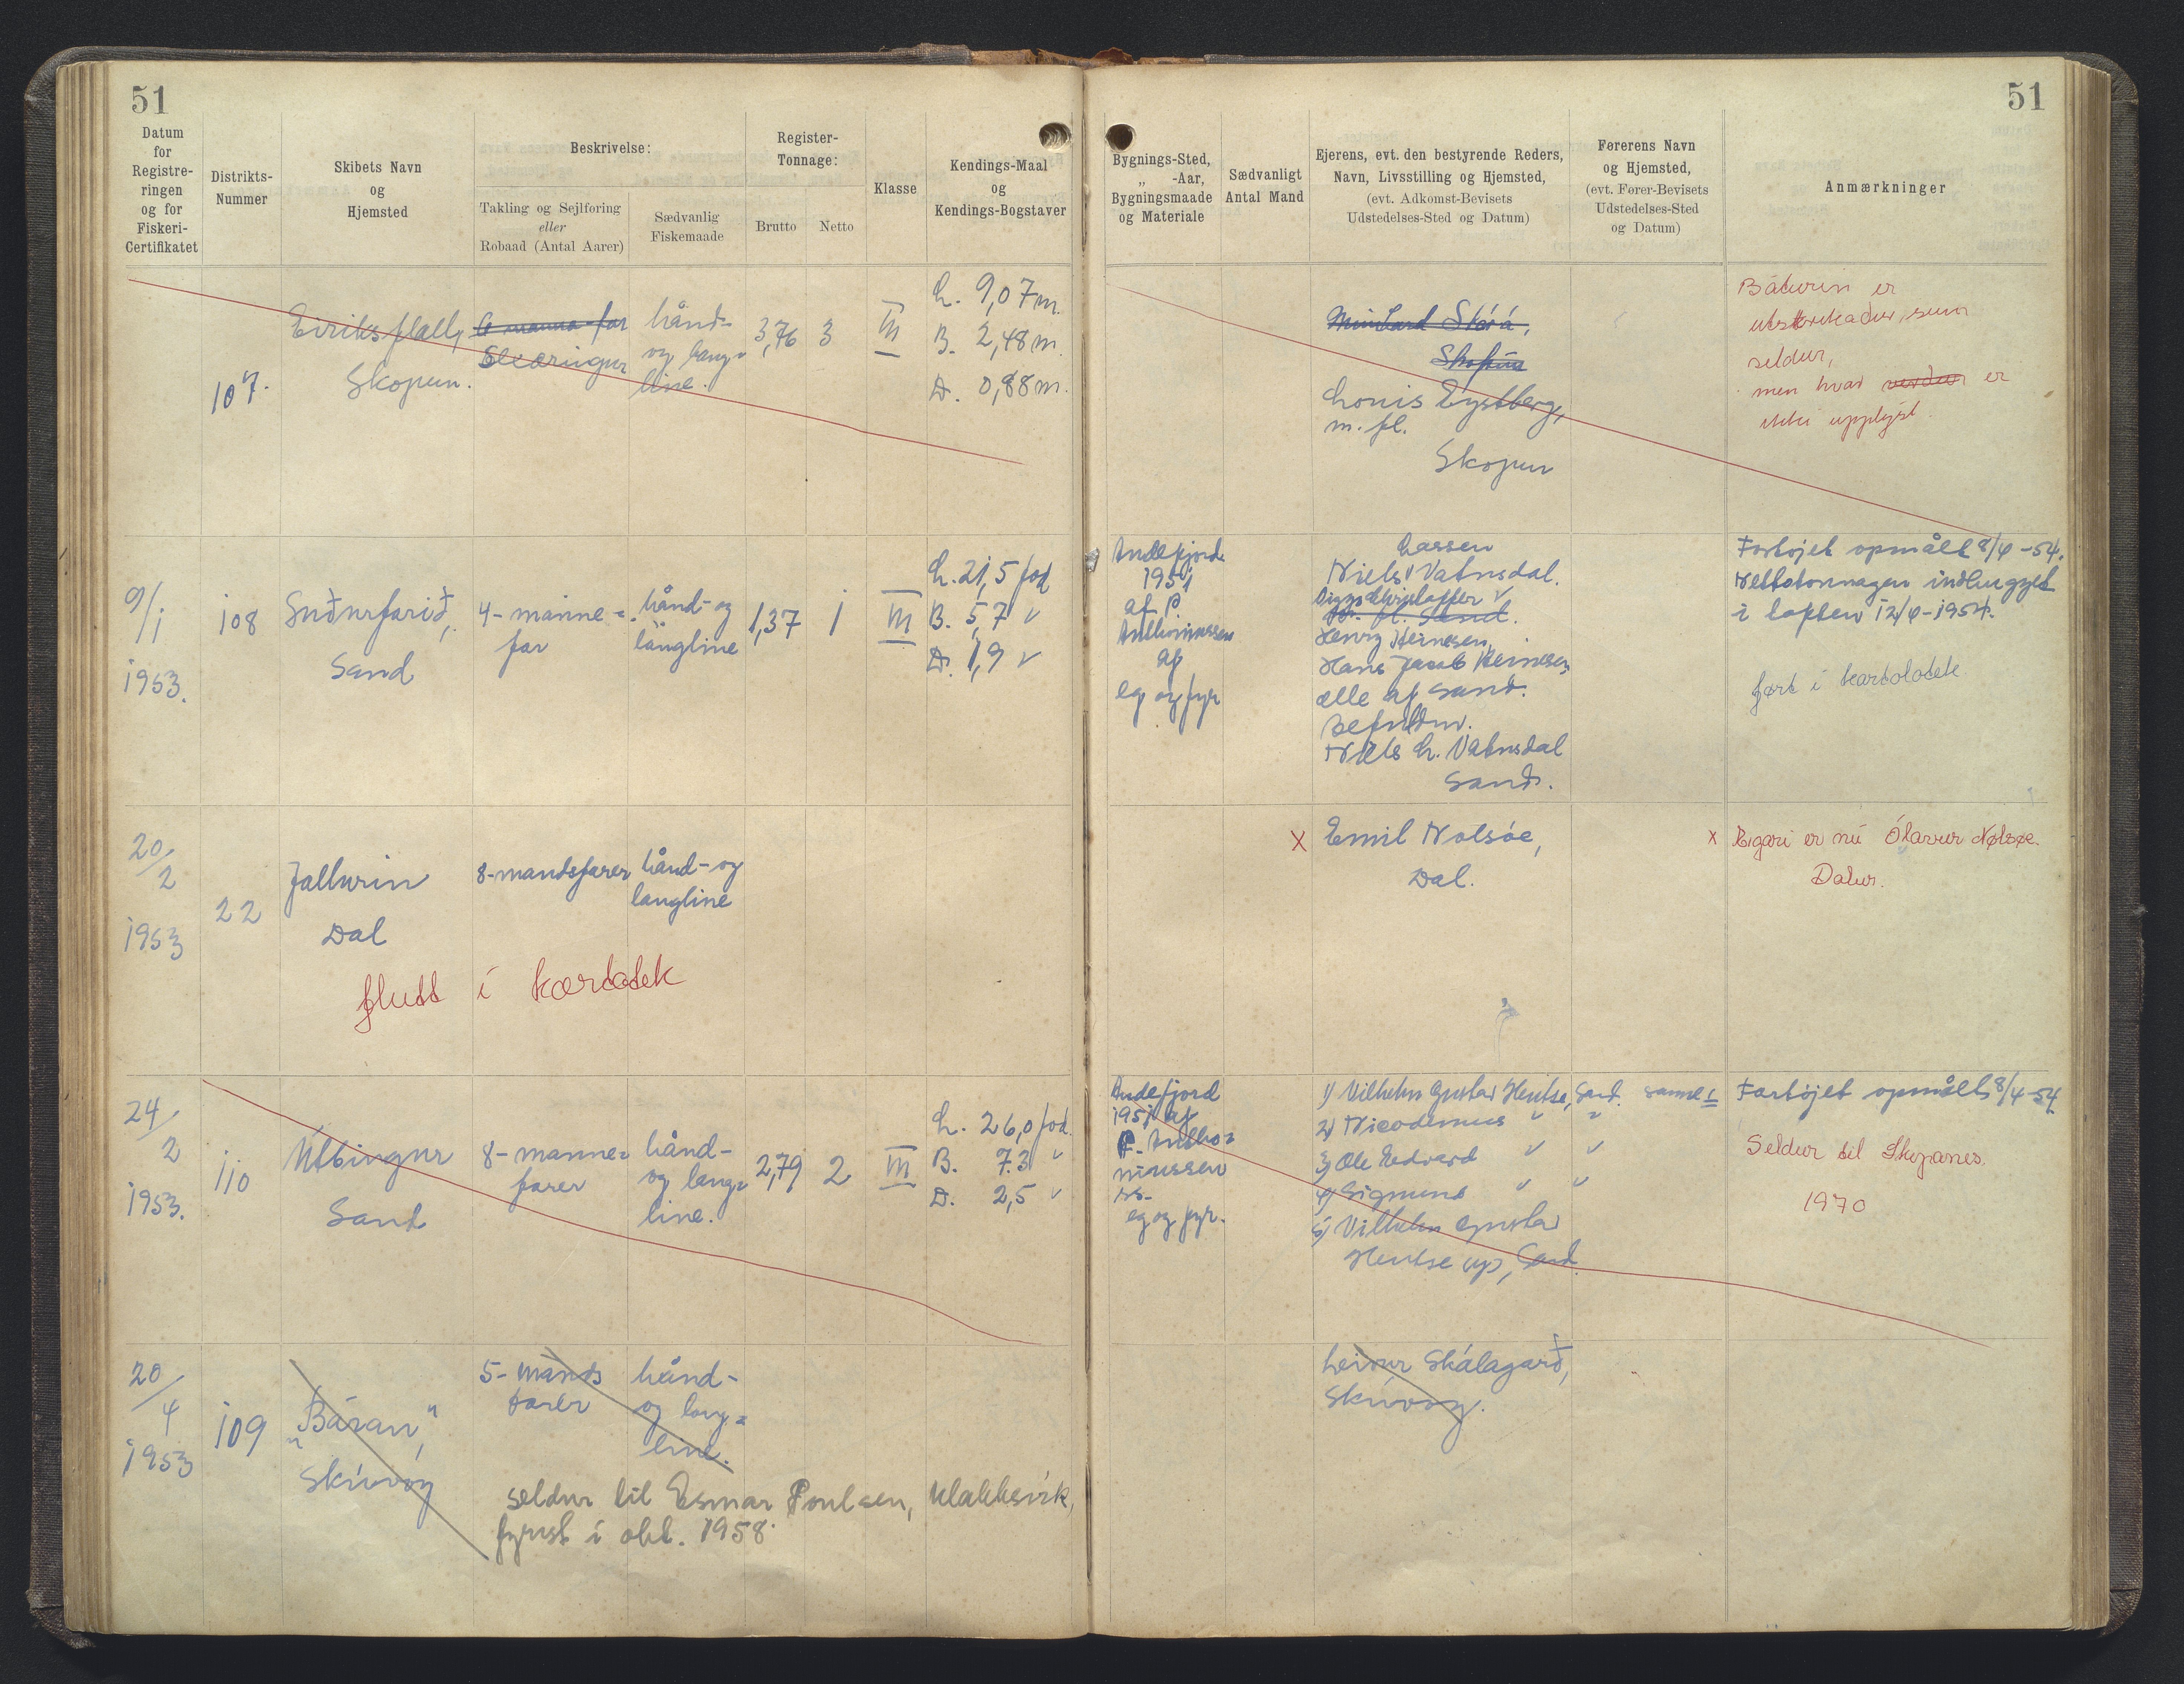 51
Datum
for
Registre-
ringen
og for
Fiskeri-
Certifikatet
Distrikts-
Nummer
Skibets Navn
og
Hjemsted
Beskrivelse:
Takling og Sejlføring
eller
Robaad (Antal Aarer)
Sædvanlig
Fiskemaade
Register-
Tonnage:
Brutto
Netto
Klasse
Kendings-Maal
og
Kendings-Bogstaver
107.
Skopun.
6 manna-far
hånd-
og lang=
line.
3,76
3
III
L. 9,07 m.
B. 2,48 m.
D. 0,88 m.
9/1
1953.
108
Suðurfarið,
Sand
4-manne=
far
hånd- og
langline
1,37
1
III
L. 21,5 fod
B. 5,7 "
D. 1,9 "
20/2
1953
22
Jallurin
Dal
8-mandsfarer
hånd- og
langline
flutt í kartotek
24/2
1953.
110
Útbingur
Sand
8-manne=
farer
hånd-
og lang=
line.
2,79
2
III
L. 26,0 fod.
B. 7.3 "
D. 2,5 "
20/4
1953
109
"Báran",
Skúvoy
5-mands
farer
hånd-
og lang=
line.
seldur til Esmar Poulsen, Klakksvík,
fyrst í okt. 1958.
51
Bygnings-Sted,
„ -Aar,
Bygningsmaade
og Materiale
Sædvanligt
Antal Mand
Ejerens, evt. den bestyrende Reders,
Navn, Livsstilling og Hjemsted,
(evt. Adkomst-Bevisets
Udstedelses-Sted og Datum)
Førerens Navn
og Hjemsted,
(evt. Fører-Bevisets
Udstedelses-Sted
og Datum)
Anmærkninger
Skorá,
Skopun
Louis Eystberg,
m. fl.
Skopun
Báturin er
seldur,
men hvar verður er
ikki upplýst.
Andefjord
1951
af P.
Anthoniussen
af
eg og fyr
Lassen
Niels Vatnsdal.
m. fl. Sand.
Henry Heinesen,
Hans Jacob Heinesen
alle af Sand.
Niels L. Vatnsdal
Sand.
Fartøjet opmålt 8/4-54.
Nettotonnagen
i 12/4-1954.
ført i kartotek
x Emil Nolsøe,
Dal.
x Eigari er nú Ólavur Nolsøe.
Dalur.
Andefjord
1951 af
P. Antho=
niussen
eg og fyr.
1) Vilhelm Gustav Hentze, Sand.
2) Nicodemus " "
3) Ole Edvard " "
4) Sigmund " "
5) Vilhelm Gustav
Hentze, Sand.
Fartøjet opmålt 8/4-54
Seldur til Skopanes.
1970
Leivur Skálagarð,
Skúvoy.